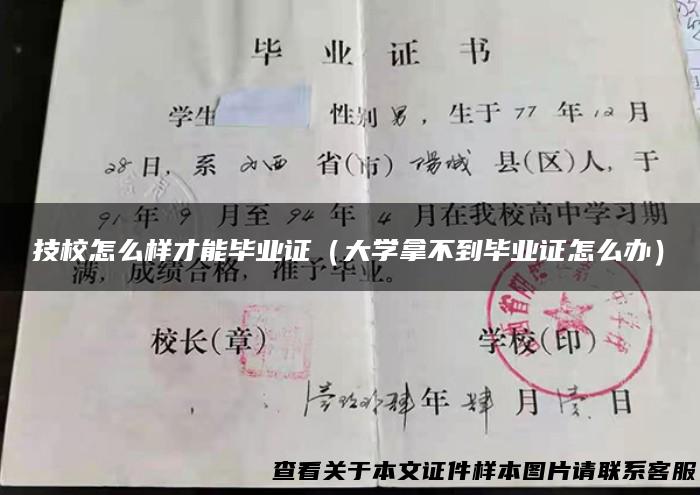 毕业证书
学生 性别男，生于77年12月
28日，系山西省(市)陽城县(区)人，于
91年9月至94年4月在我校高中学习期
技校怎么样才能毕业证（大学拿不到毕业证怎么办）
满，成绩合格，准予毕业。
校长(章) 学校(印)
年肆月壹日
查看关于本文证件样本图片请联系客服